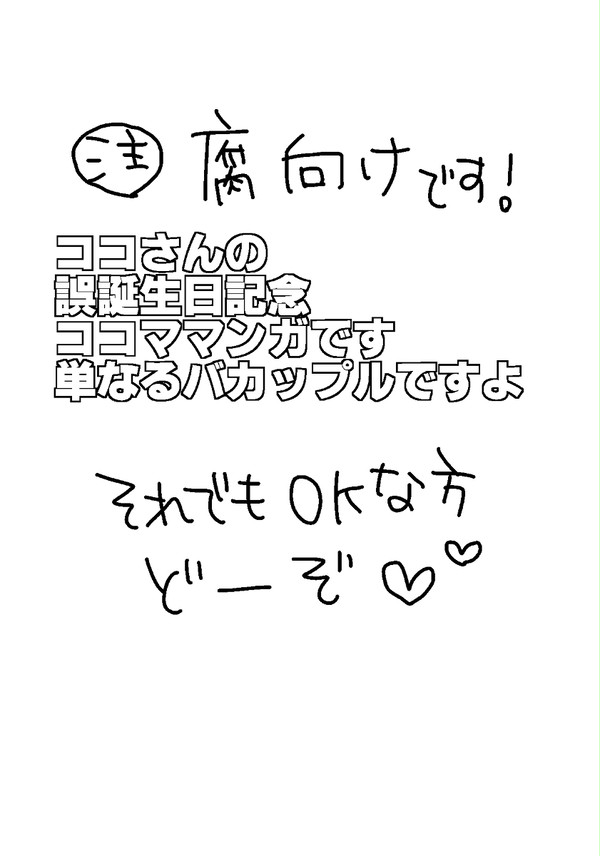 注 腐向けです!
ココさんの
誤誕生日記念
ココママンガです
単なるバカップルですよ
それでもOKな方
どーぞ♡♡